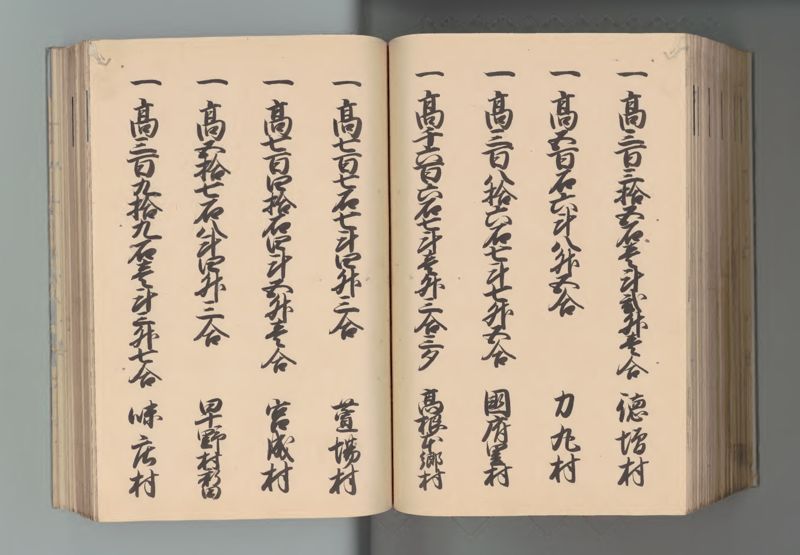 一 高三百三拾五石壱斗弐升壱合 徳増村
一 高五百石六斗八升五合 力丸村
一 高三百八拾六石七斗七升五合 國府里村
一 高千六百六石七斗壱升二合三夕 高根本郷村
一 高七百七石七斗四升三合 萱場村
一 高七百四拾石四斗五升壱合 宮成村
一 高五拾七石八斗四升三合 早野村新田
一 高三百九拾九石壱斗三升七合 味庄村